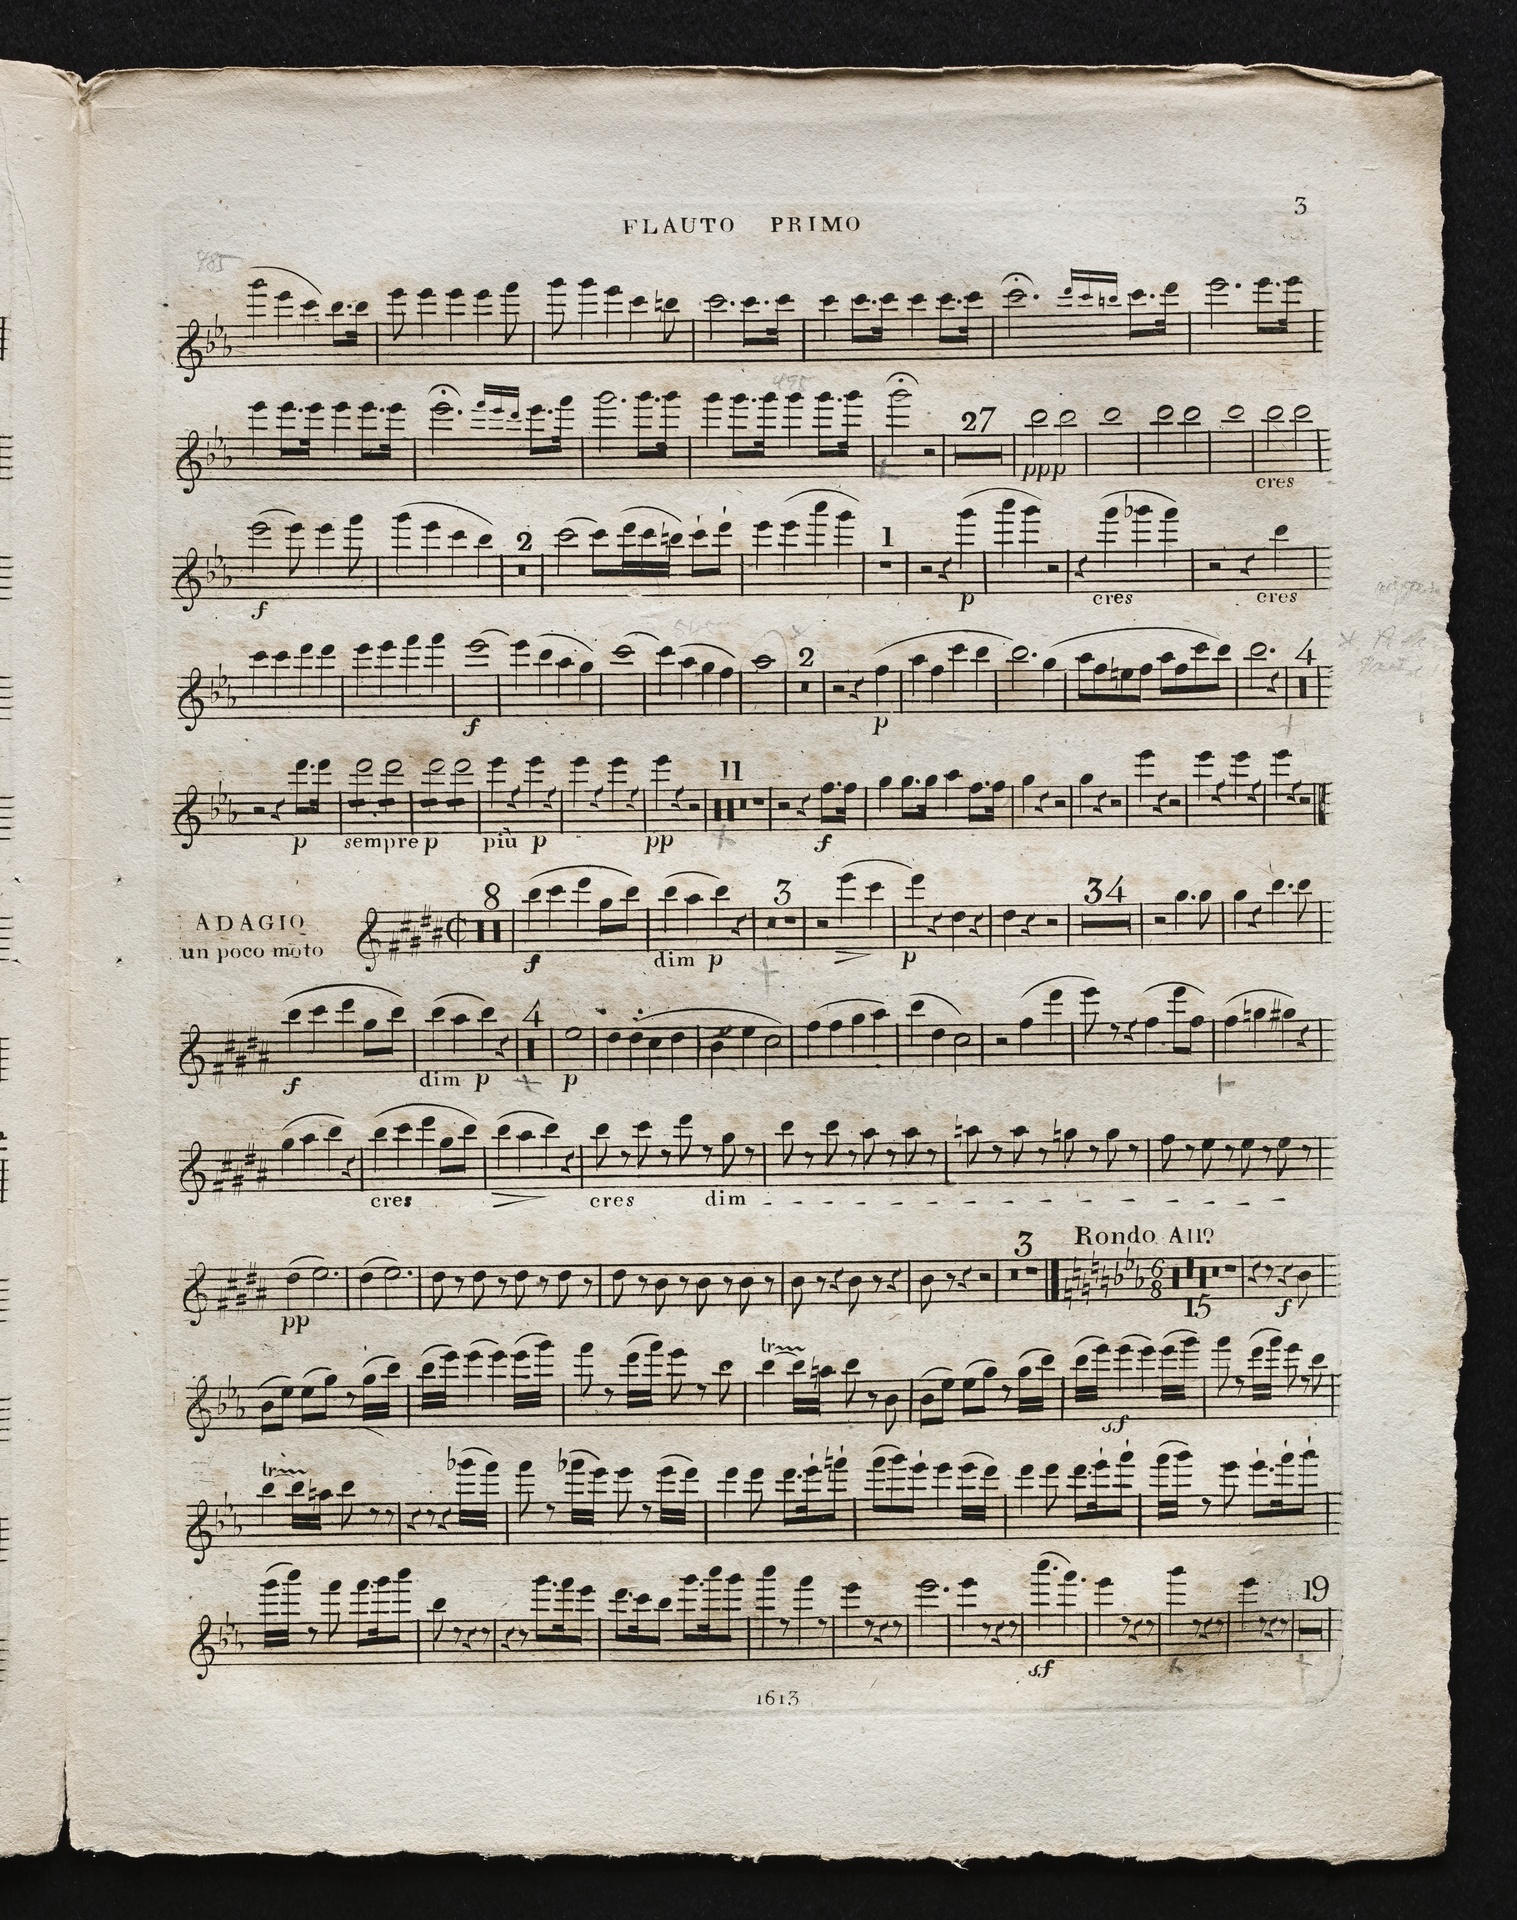 3
FLAUTO PRIMO
485
495
27
ppp
cres
2
1
f
p
cres
cres
2
4
f
p
11
p
sempre p
più p
pp
f
ADAGIO
un poco moto
8
3
34
f
dim p
p
4
f
dim p
p
cres
cres
dim
3
Rondo All?
6
8
15
pp
f
trm
sf
trm
19
sf
1613